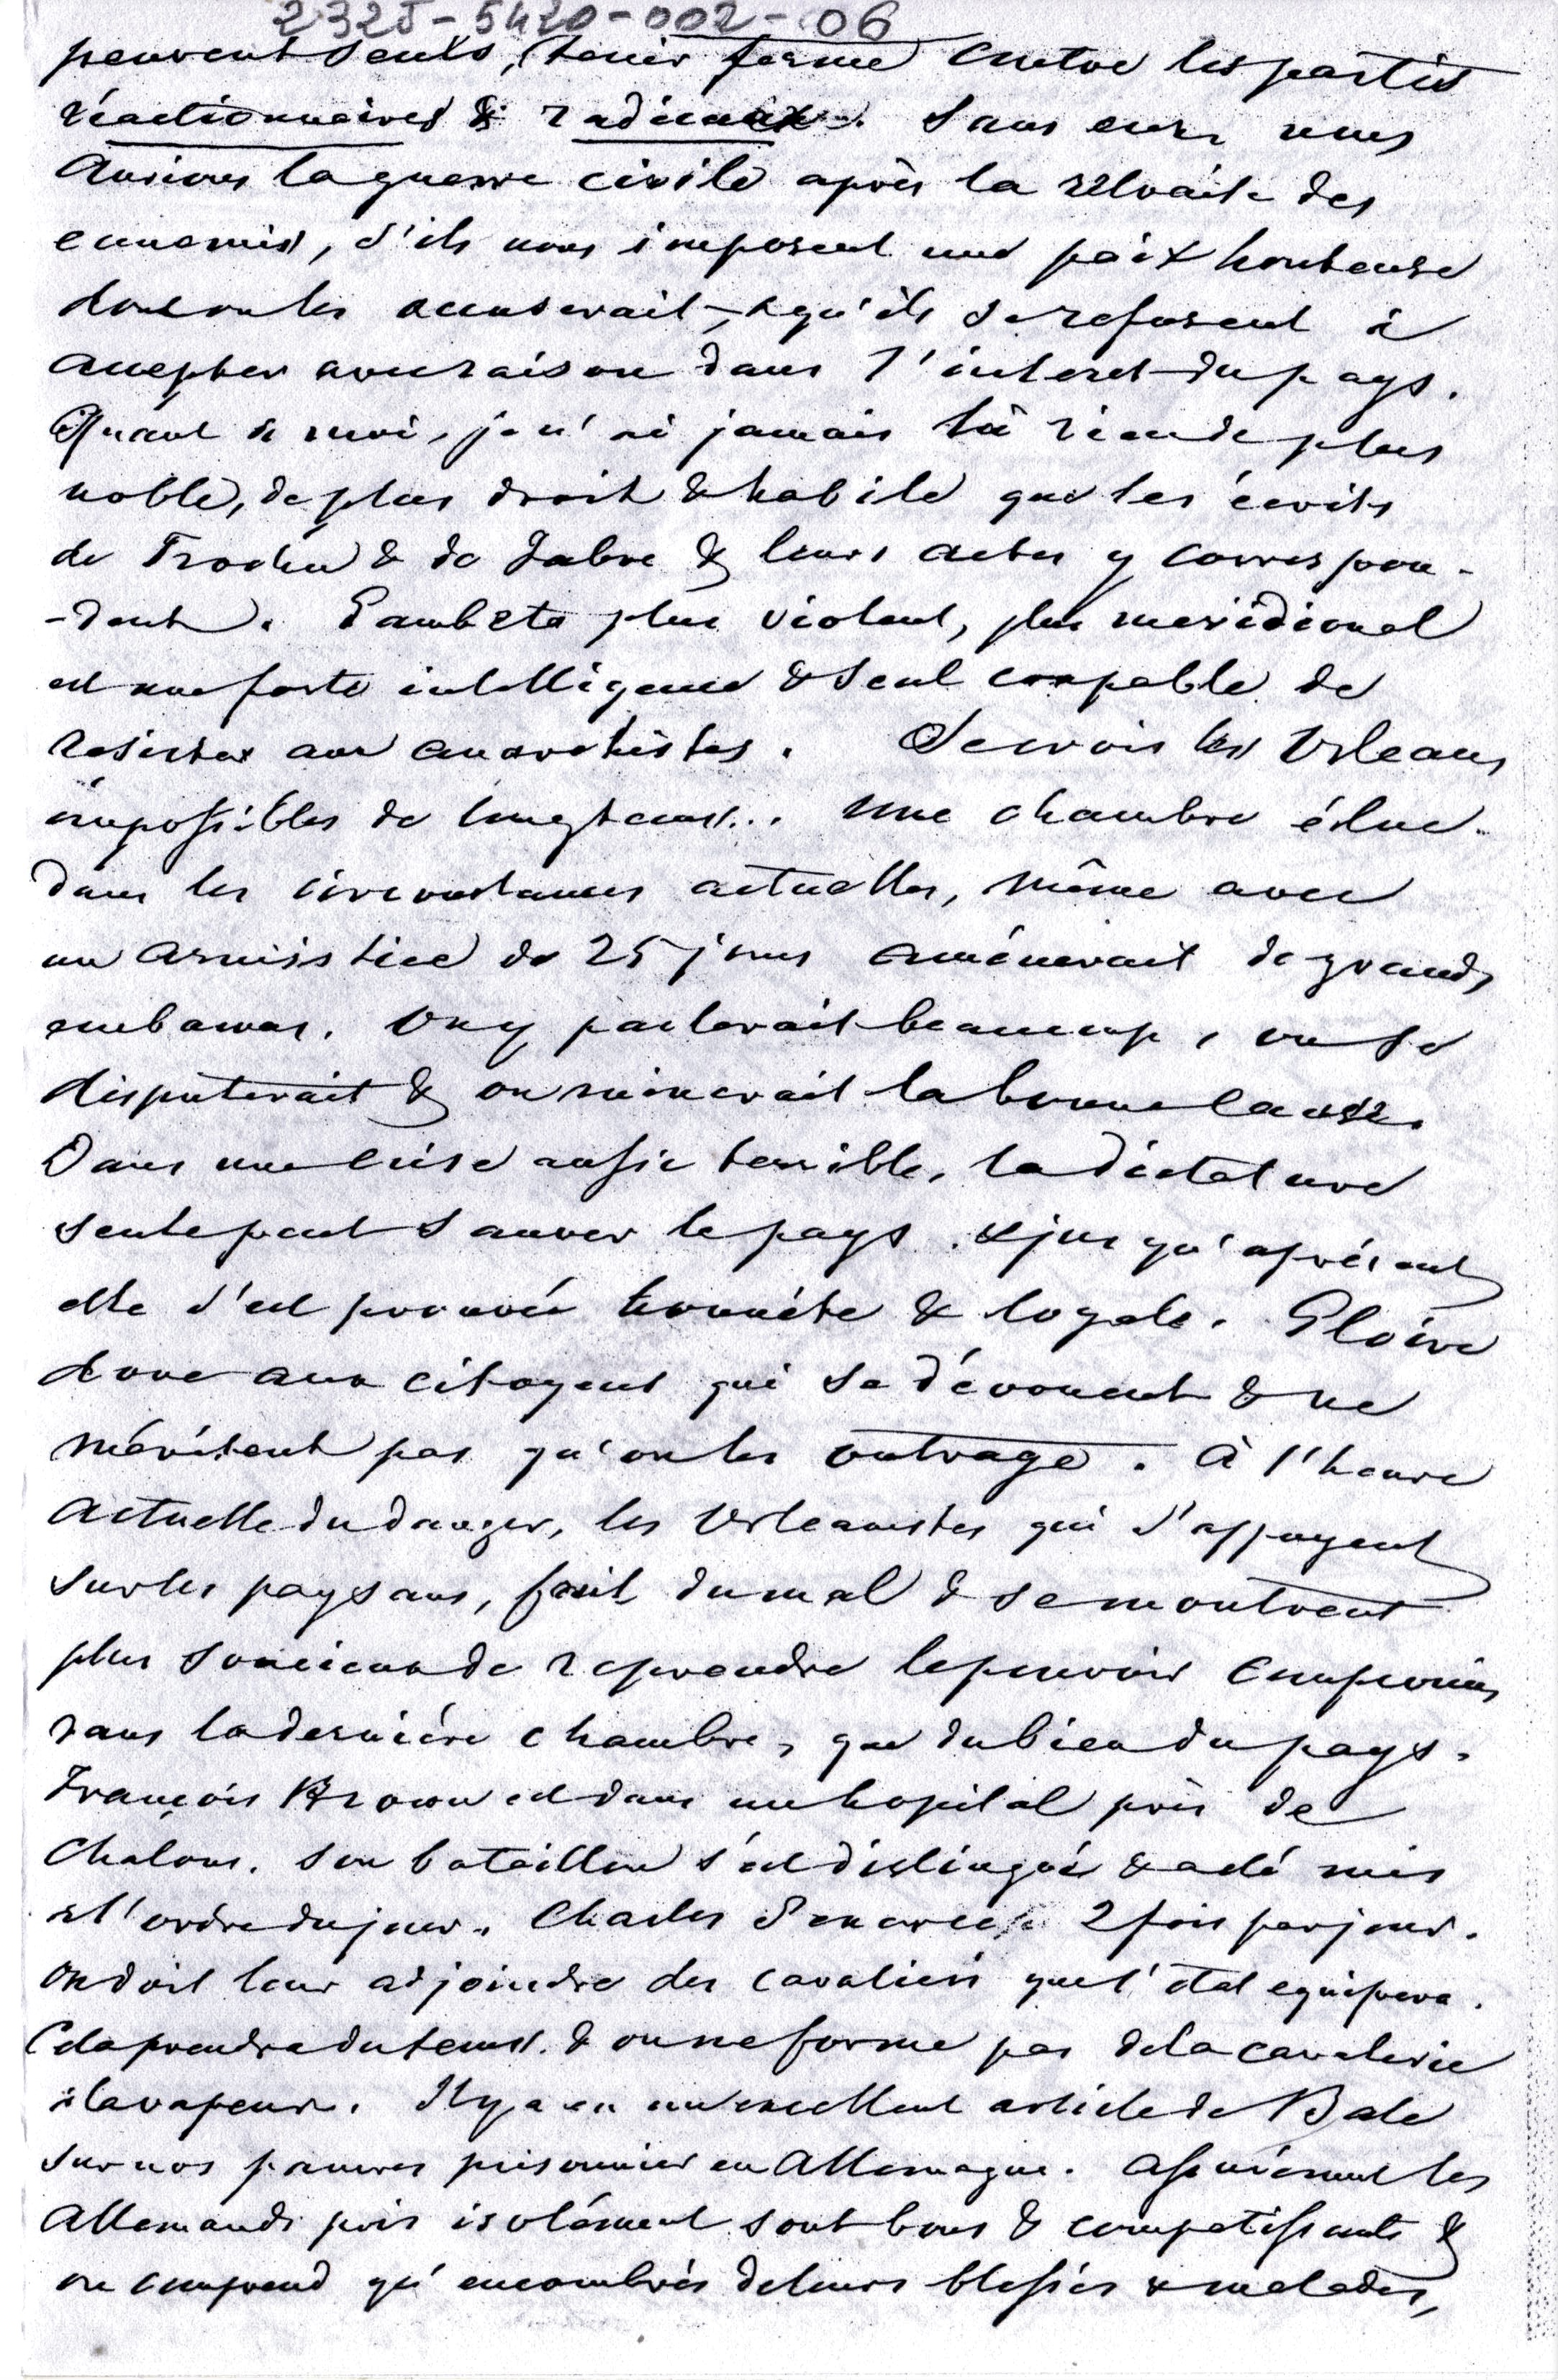 2325-5420-002-06
peuvent seuls, tenir ferme contre les partis
réactionnaires & radicaux. Sans eux nous
aurions la guerre civile après la retraite des
ennemis, s'ils nous imposent une paix honteuse
dont on les accuserait, & qu'ils se refusent à
accepter avec raison dans l'interet du pays.
Quant à moi, je n'ai jamais lû rien de plus
noble, de plus droit & habile que les écrits
de Trochu & de Fabre & leurs actes y correspon-
-dent. Gambeta plus violent, plus meridional
est une forte intelligence & seul capable de
resister aux anarchistes. Je crois les Orleans
impossibles de longtems... Une chambre élue
dans les circonstances actuelles, même avec
un armisstice de 25 jours aménerait de grands
embarras. On y parlerait beaucoup, on se
disputerait & on ruinerait la bonne cause.
Dans une crise aussi terrible, la dictature
seule peut sauver le pays. & jusqu'aprésent
elle s'est prouvée honnéte & loyale. Gloire
donc aux citoyens qui se dévouent & ne
méritent pas qu'on les outrage. à l'heure
actuelle du danger, les Orleanistes qui s'appuyent
sur les paysans, font du mal & se montrent
plus soucieux de reprendre le pouvoir compromis
dans la derniére chambre, que du bien du pays.
François Brown est dans un hopital près de
Chalons. Son bataillon s'est distingué & a été mis
à l'ordre du jour. Charles 2 fois par jour.
On doit leur adjoindre des cavaliers que l'état equipera.
Cela prendra du tems. & on ne forme pas de la cavalerie
à la vapeur. Il y a eu un excellent article de Bale
sur nos pauvres prisonniers en Allemagne. Assurément les
Allemands pris isolément sont bons & compatissants &
on comprend qu'encombrés de leurs blessés & malades,